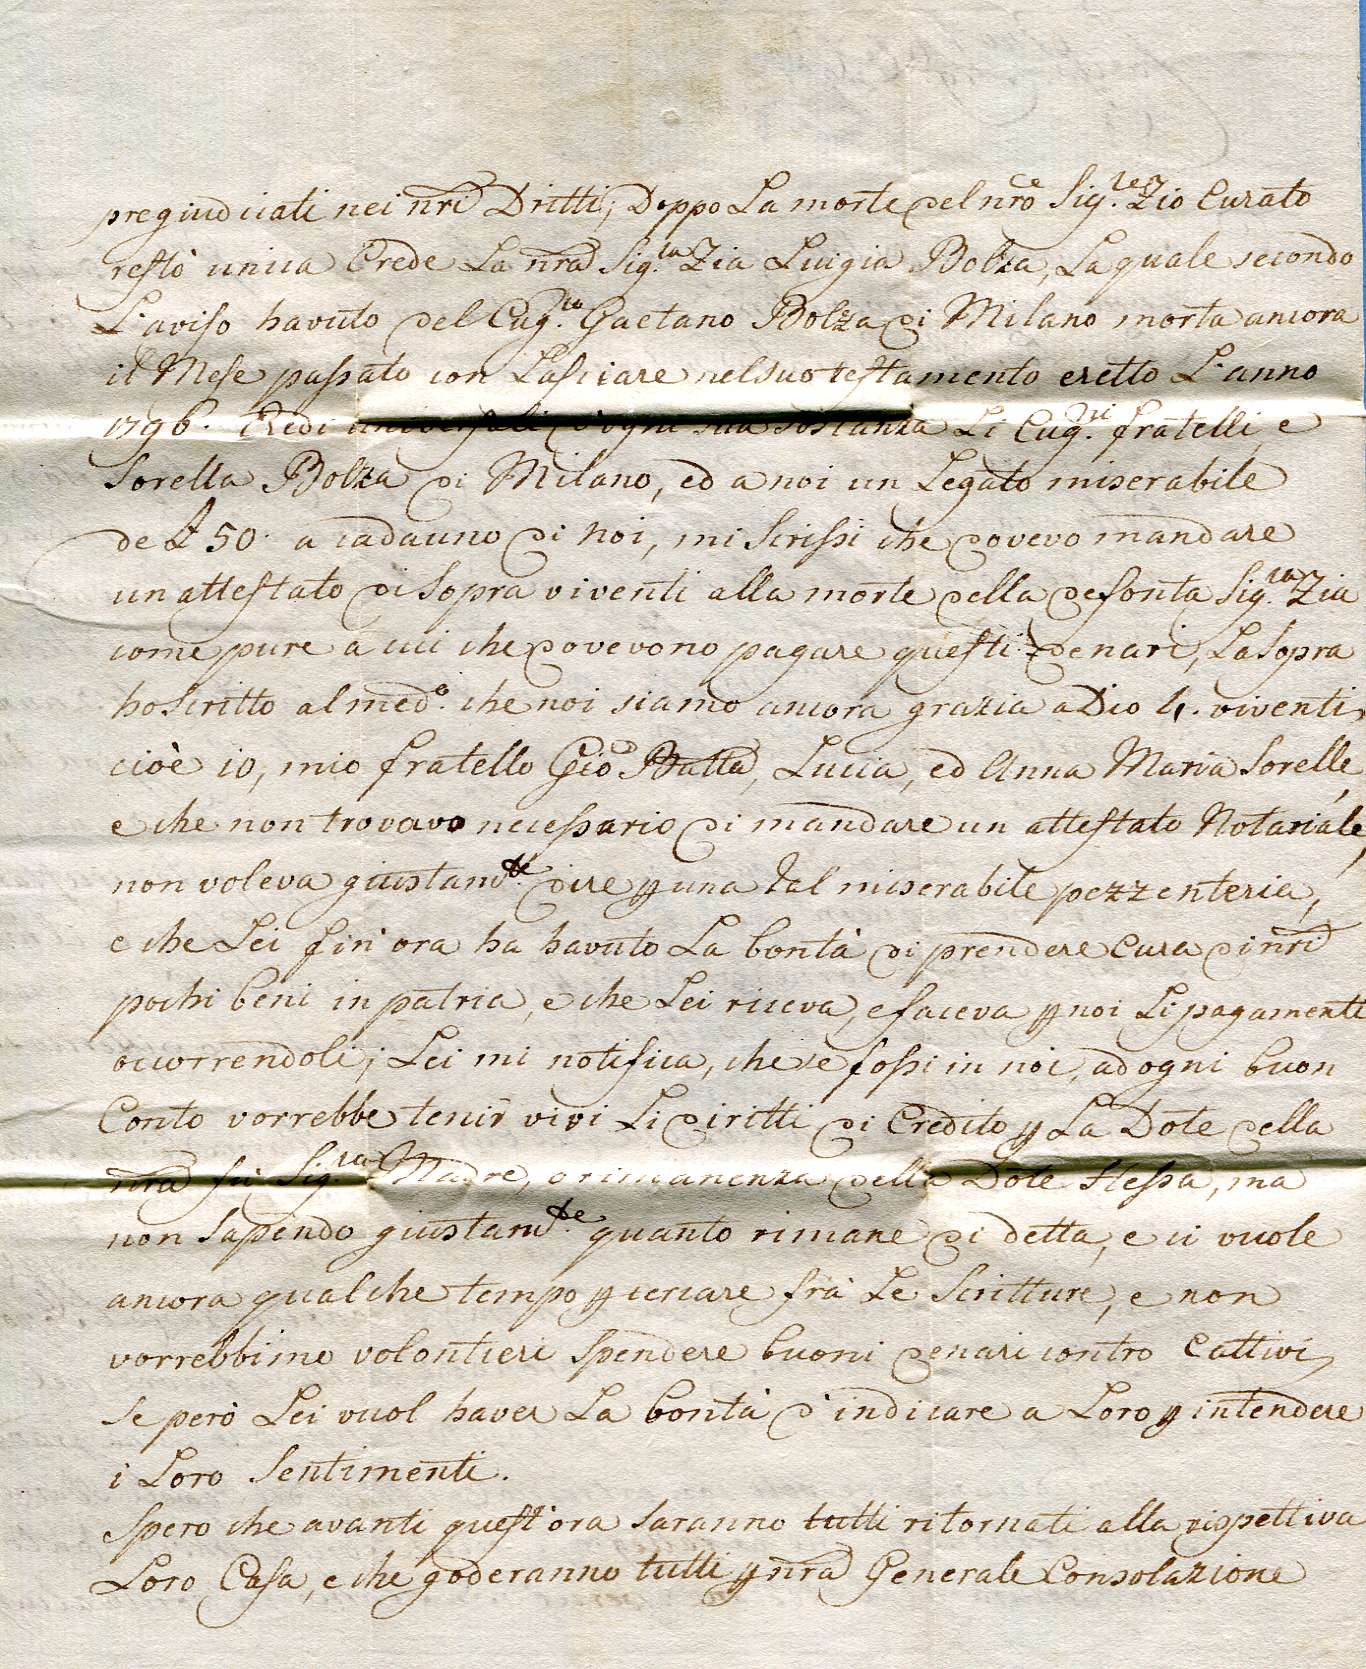 pregiudicati nei nri Dritti; Doppo La morte del nro Sig.re Zio Curato
restò unica Erede La nra Sig.ra Zia Luigia Bolza, La quale secondo
L'aviso havuto del Cug.no Gaetano Bolza di Milano morta ancora
il Mese passato con Lasciare nel suo testamento eretto L'anno
1796. Eredi universali d'ogni sua sostanza Li Cug.ni fratelli, e
Sorella Bolza di Milano, ed a noi un Legato miserabile
de £ 50. a cadauno di noi, mi Scrissi che dovevo mandare
un attestato di Sopra viventi alla morte della defonta Sig.ra Zia
come pure a cui che dovevono pagare questi denari, La Sopra
ho Scritto al med.o che noi siamo ancora grazia a Dio 4. viventi,
cioè io, mio fratello Gio Batta, Lucia, ed Anna Maria Sorelle,
e che non trovavo necessario di mandare un attestato Notariale,
non voleva giustam.te dire p una tal miserabile pezzenteria,
e che Lei fin'ora ha havuto La bontà di prendere cura di nri
pochi beni in patria, e che Lei riceva, e faceva p noi Li pagamenti
occorrendoli; Lei mi notifica, che se fossi in noi, ad ogni buon
Conto vorrebbe tenir vivi Li diritti di Credito p La Dote della
nra fu Sig.ra Madre, o rimanenza della Dote stessa, ma
non Sapendo giustam.te quanto rimane di detta, e ci vuole
ancora qualche tempo p cercare frà Le Scritture, e non
vorrebbimo volontieri Spendere buoni denari contro Cattivi,
se però Lei vuol haver La bontà d'indicare a Loro p intendere
i Loro Sentimenti.
Spero che avanti quest'ora saranno tutti ritornati alla rispettiva
Loro Casa, e che goderanno tutti p nra Generale Consolazione